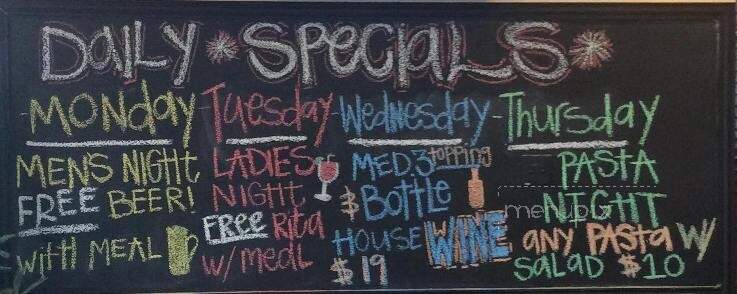 DAILY * SPECIALS *
MONday
MENS NIGHt
FREE BEER!
WitH MEAL
Tuesday
LADIES
NIGHT
FREE Rita
W/ meaL
Wednesday
MED. 3 topping
$ BOttLe
HOUSE WINE
$19
Thursday
PASTA
NIGHT
ANY PASta W/
SALAD $10
menupix